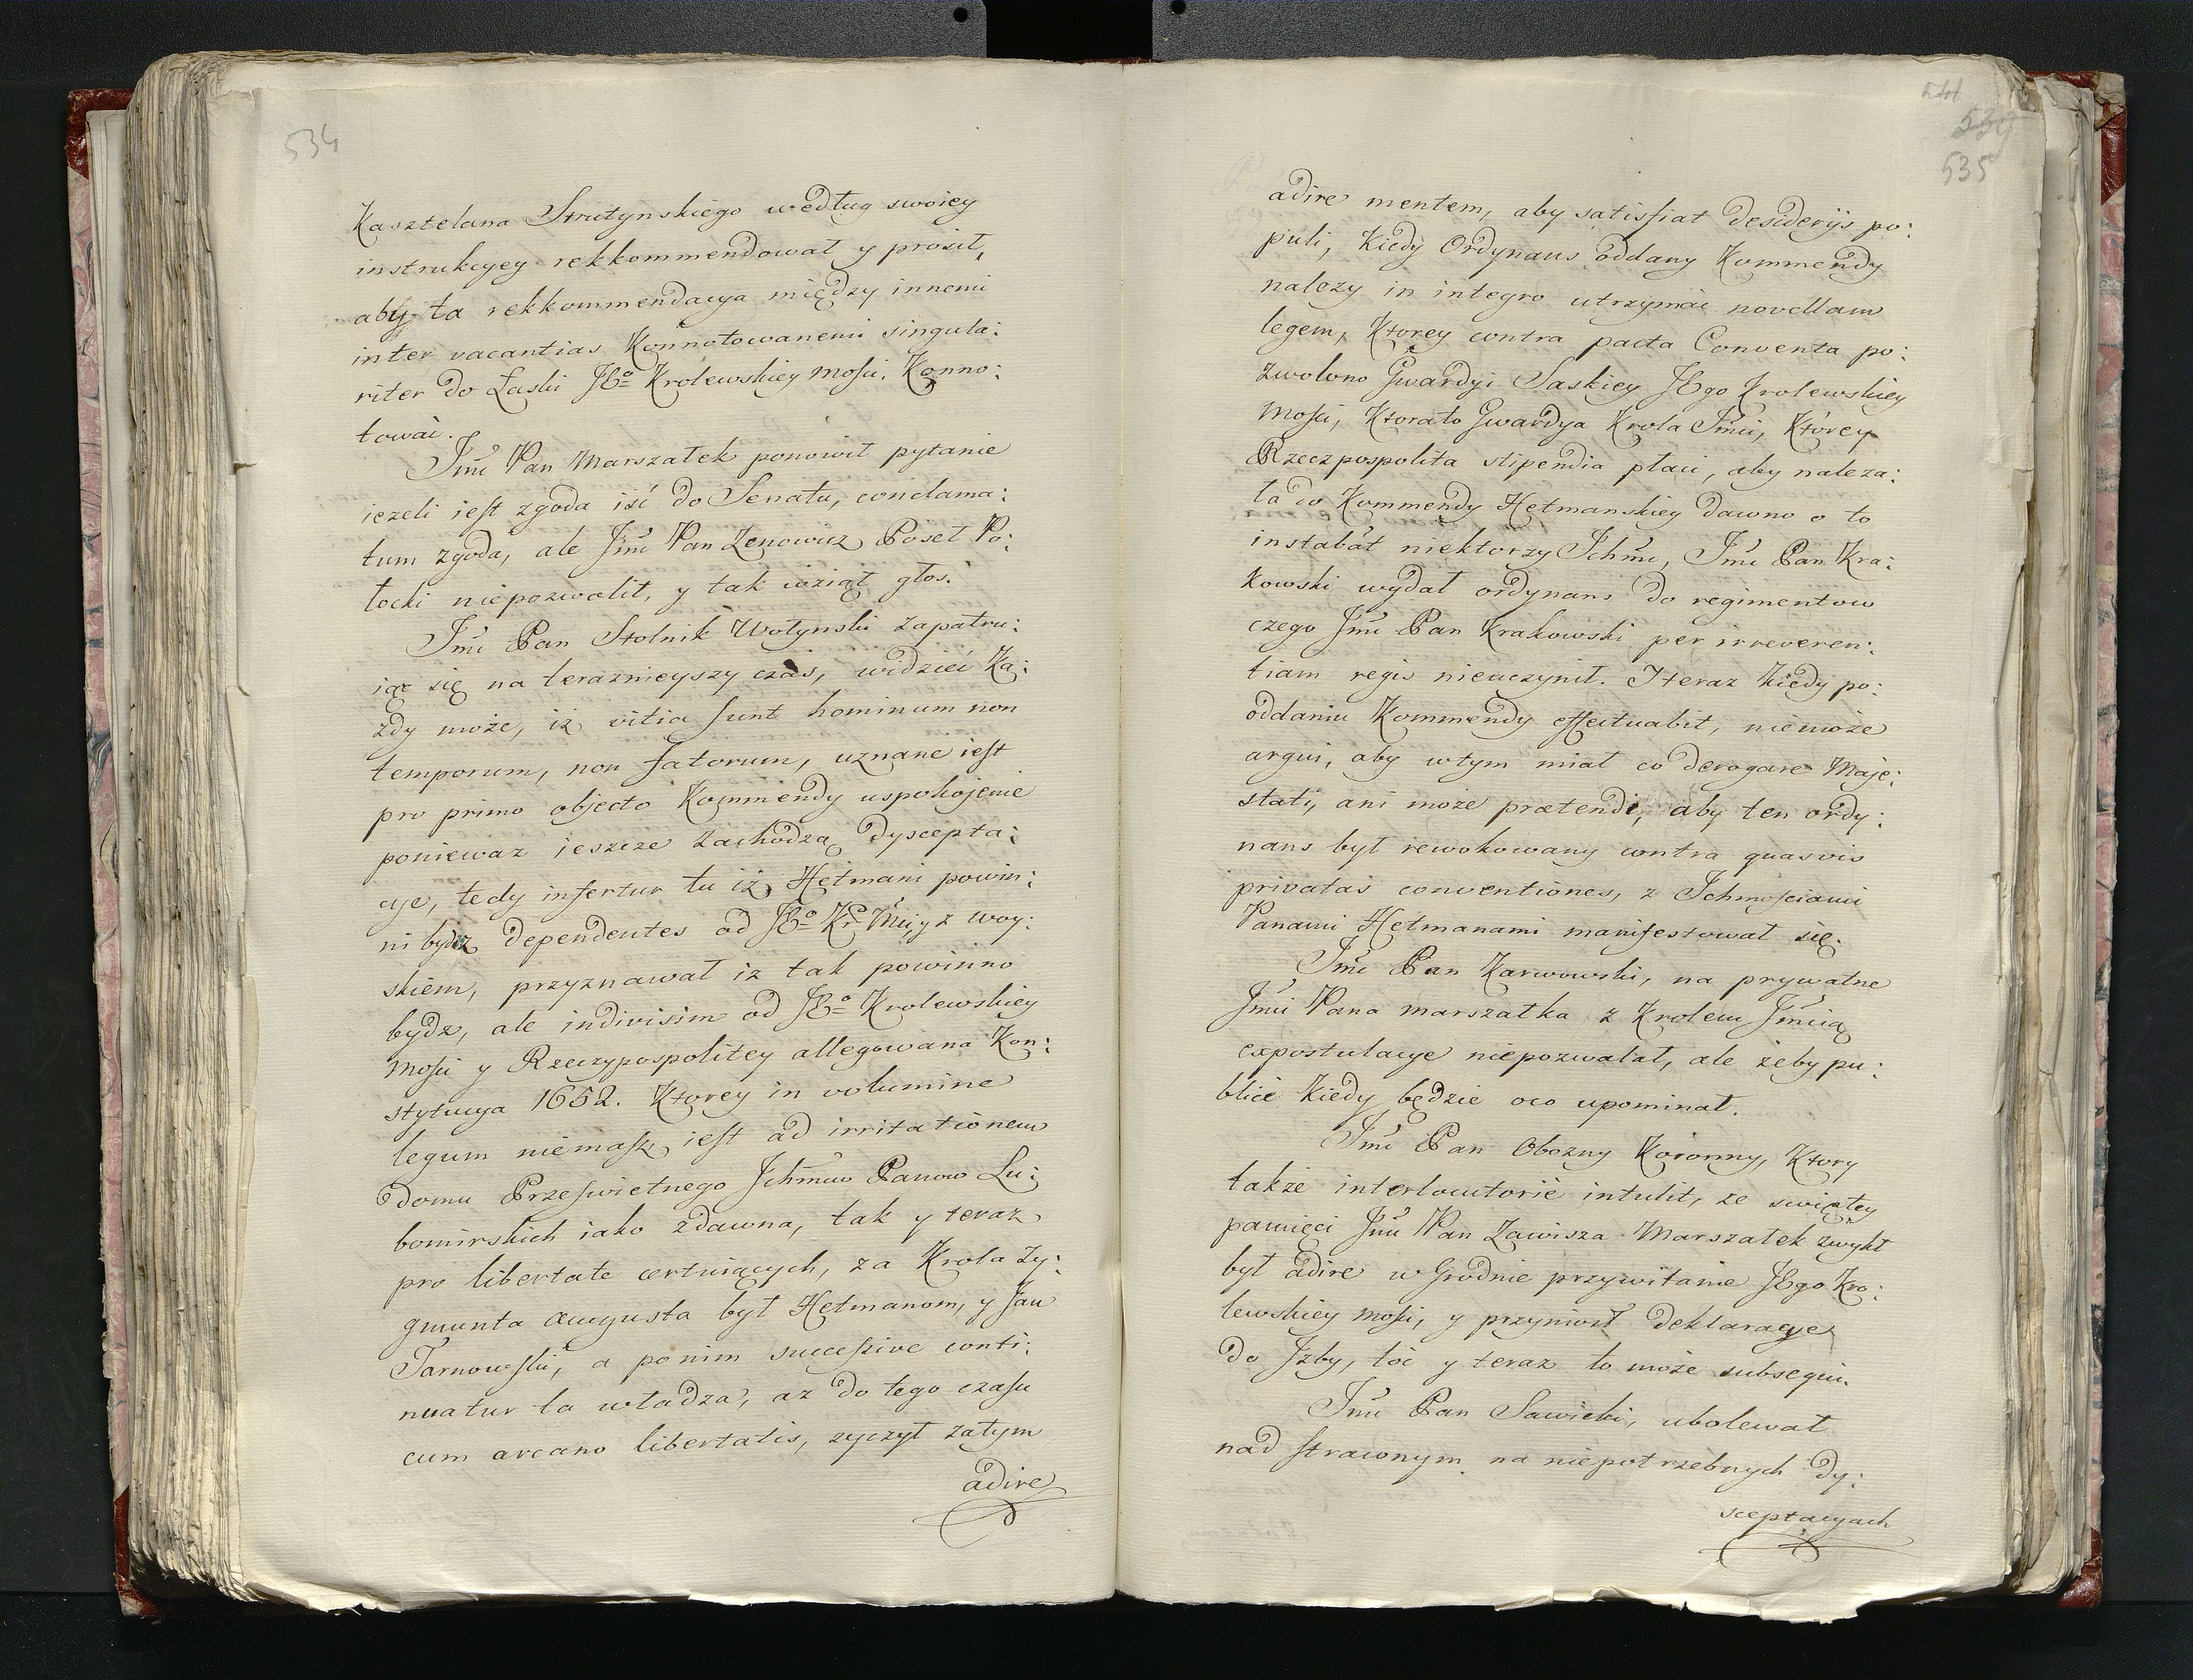 534
Kasztelana Strutynskiego według swoiey
instrukcyey rekkommendował y prosił,
aby ta rekkommendacya między innemi
inter vacantias Konnotowanemi singula:
riter do Łaski JEº Krolewskiey Mości. Konno:
tować.
Jmć Pan Marszałek ponowił pytanie
iezeli iest zgoda iść do Senatu, conclama:
tum zgoda, ale Jmć Pan Zenowicz Poseł Po:
łocki niepozwolił, y tak wziął głos.
Jmć Pan Stolnik Wołynski zapatru:
iąc się na teraznieyszy czas, widzieć Ka:
żdy może, iż vitia sunt hominum non
temporum, non fatorum, uznane iest
pro primo objecto Kommendy uspokojenie
poniewaz ieszcze zachodzą dyscepta:
cye, tedy infertur tu iż Hetmani powin:
ni bydz dependentes od JEº Kr Mci, y z woy:
skiem, przyznawał iz tak powinno
bydz, ale indivisim od JEº Krolewskiey
Mości y Rzeczypospolitey allegowana Kon:
stytucya 1652. Ktorey in volumine
legum niemasz, iest ad irritationem
domu Prześwietnego Jchmciow Panow Lu:
bomirskich iako zdawna, tak y teraz
pro libertate certuiących, za Krola Zy:
gmunta Augusta był Hetmanom, y Jan
Tarnowski, a po nim successive conti:
nuatur ta władza, az do tego czasu
cum arcano libertatis, zyczył zatym
adire
541
539
535
adire mentem, aby satisfiat desiderijs po:
puli, Kiedy Ordynans oddany Kommendy
nalezy in integro utrzymać novellam
legem, Ktorey contra pacta Conventa po:
zwolono Gwardyi Saskiey JEgo Krolewskiey
Mości, Ktorato Gwardya Krola Jmci, Ktorey
Rzeczpospolita stipendia płaci, aby naleza:
ła do Kommendy Hetmanskiey dawno o to
instabat niektorzy Jchmć, Jmć Pan Kra:
kowski wydał ordynans do regimentow
czego Jmć Pan Krakowski per irreveren:
tiam regis nieuczynił. Iteraz kiedy po:
oddaniu Kommendy effectuabit, niemoże
argui, aby wtym miał co derogare Maje:
stati, ani może prætendi, aby ten ordy:
nans był rewokowany contra quasvis
privatas conventiones, z Jchmościami
Panami Hetmanami manifestował się.
Jmć Pan Karwowski, na prywatne
Jmci Pana Marszałka z Krolem Jmcią
expostulacye niepozwalał, ale żeby pu:
blicè kiedy będzie oco upominał.
Jmć Pan Obozny Koronny, Ktory
także interlocutoriè intulit, ze swiętey
pamięci Jmć Pan Zawisza Marszałek zwykł
był adire w Grodnie przywitanie JEgo Kro:
lewskiey Mości, y przyniosł deklaracye
do Jzby, toć y teraz to może subsequi.
Jmć Pan Sawicki, ubolewał
nad straconym na niepotrzebnych dy:
sceptacyach